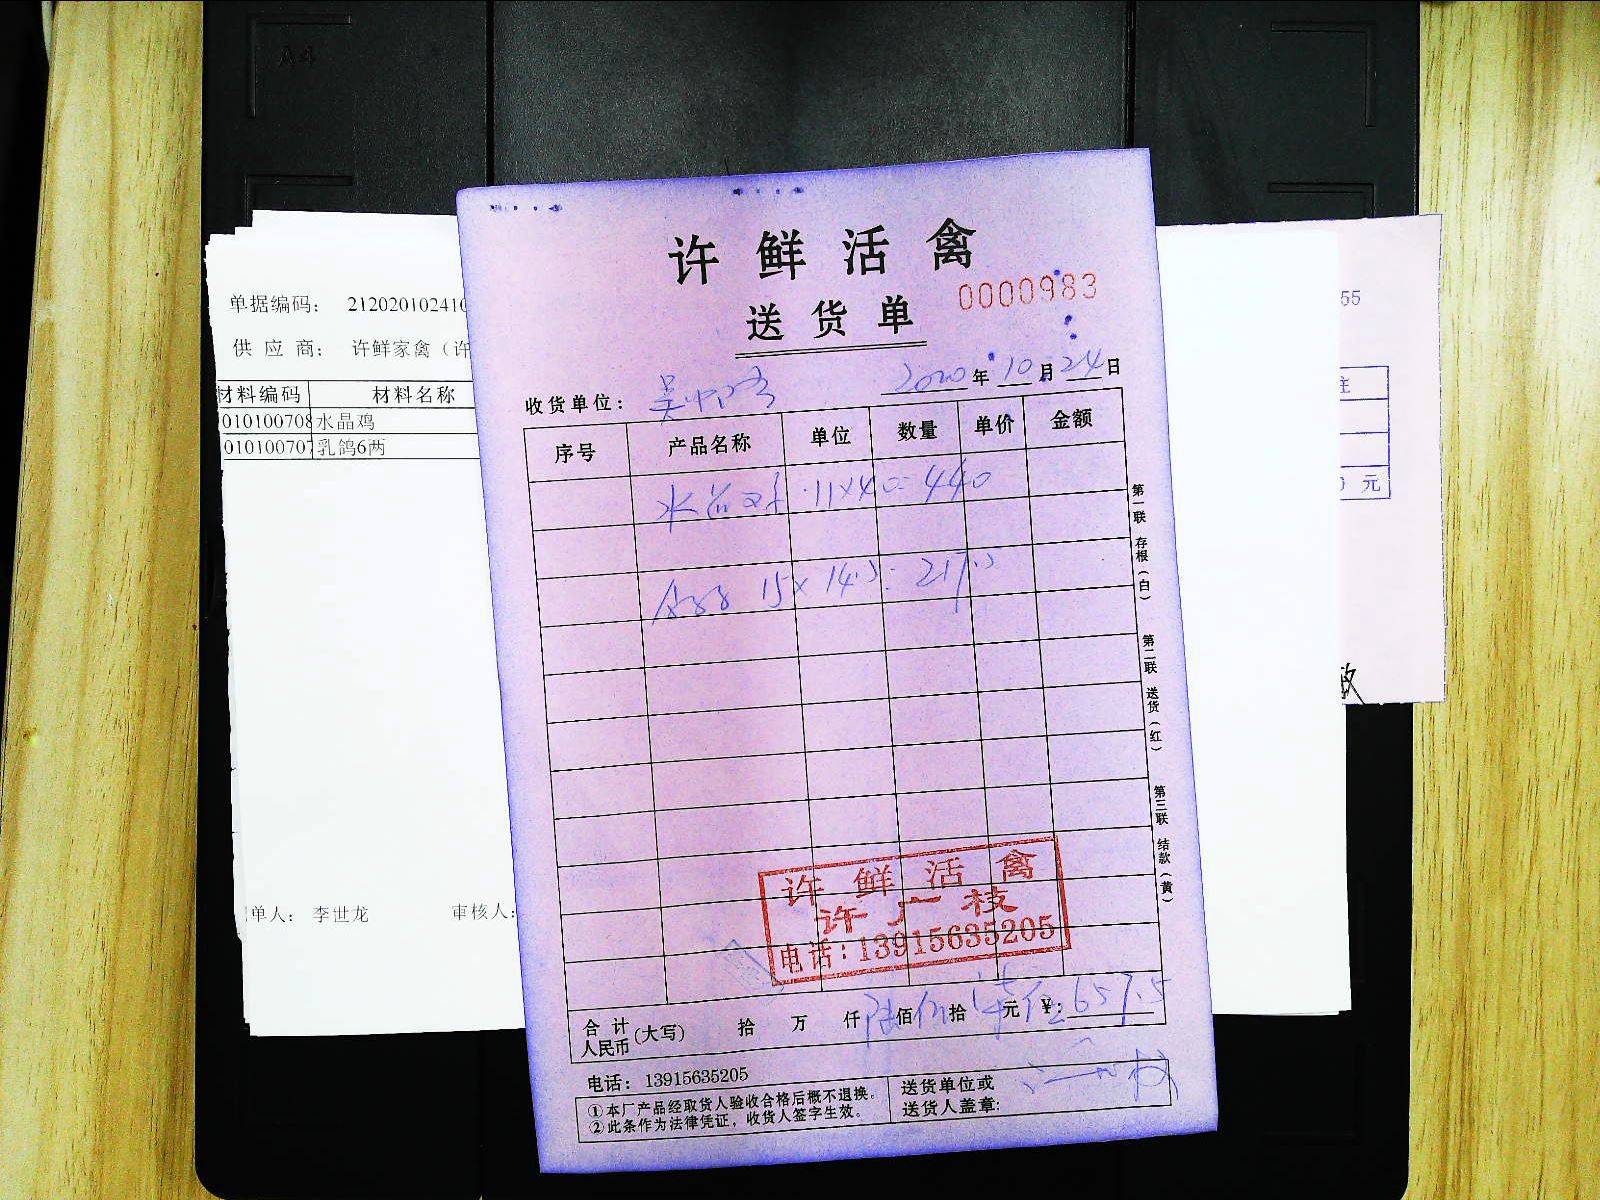 许鲜活禽
送货单
0000983
2020年10月24日
收货单位：吴中
序号 产品名称 单位 数量 单价 金额
水晶鸡 11×40=440
15×14.5=217.5
第一联 存根（白）
第二联 送货（红）
第三联 结款（黄）
许鲜活禽
许广枝
电话：13915635205
合计人民币（大写） 拾 万 仟 陆佰伍拾柒元 ¥：657.5
电话：13915635205
①本厂产品经取货人验收合格后概不退换。
②此条作为法律凭证，收货人签字生效。
送货单位或
送货人盖章：
单据编码： 21202010241
供应商： 许鲜家禽（许
材料编码 材料名称
010100708 水晶鸡
01010070 乳鸽6两
单人： 李世龙 审核人：
55
元